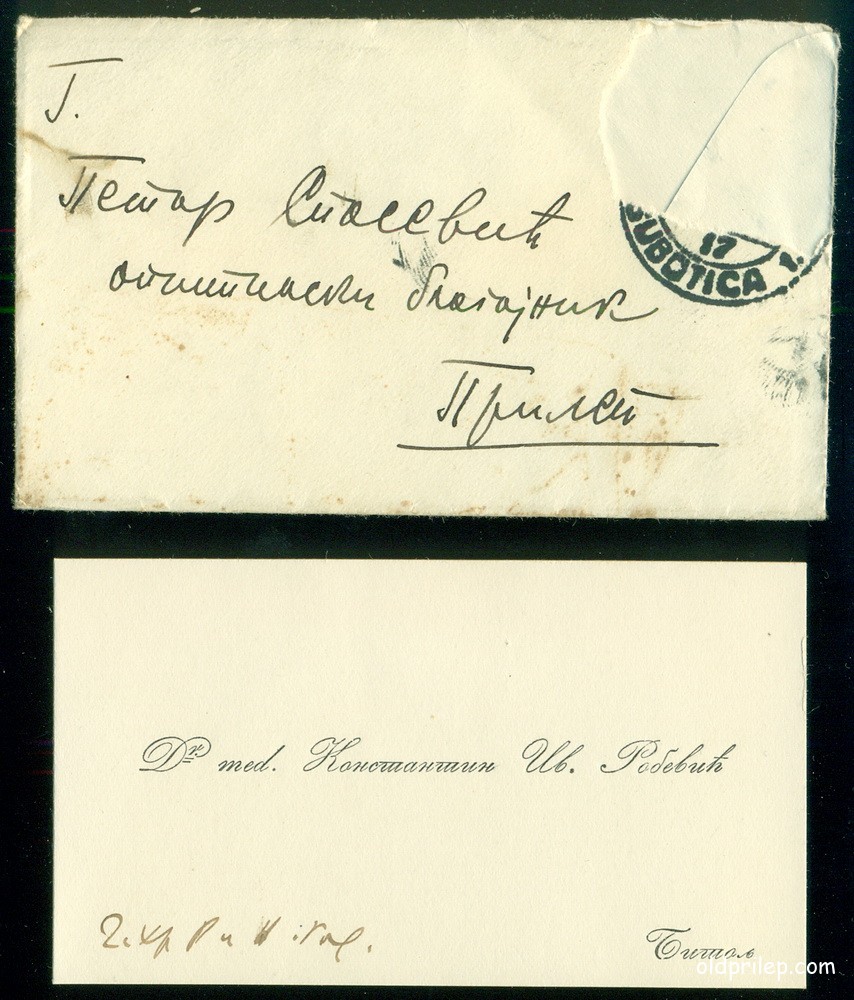 Г.
Петар Спасевић
општински благајник
Прилеп
17
SUBOTICA 1.
Dr. med. Константин Ив. Робевић
Битољ
oldprilep.com